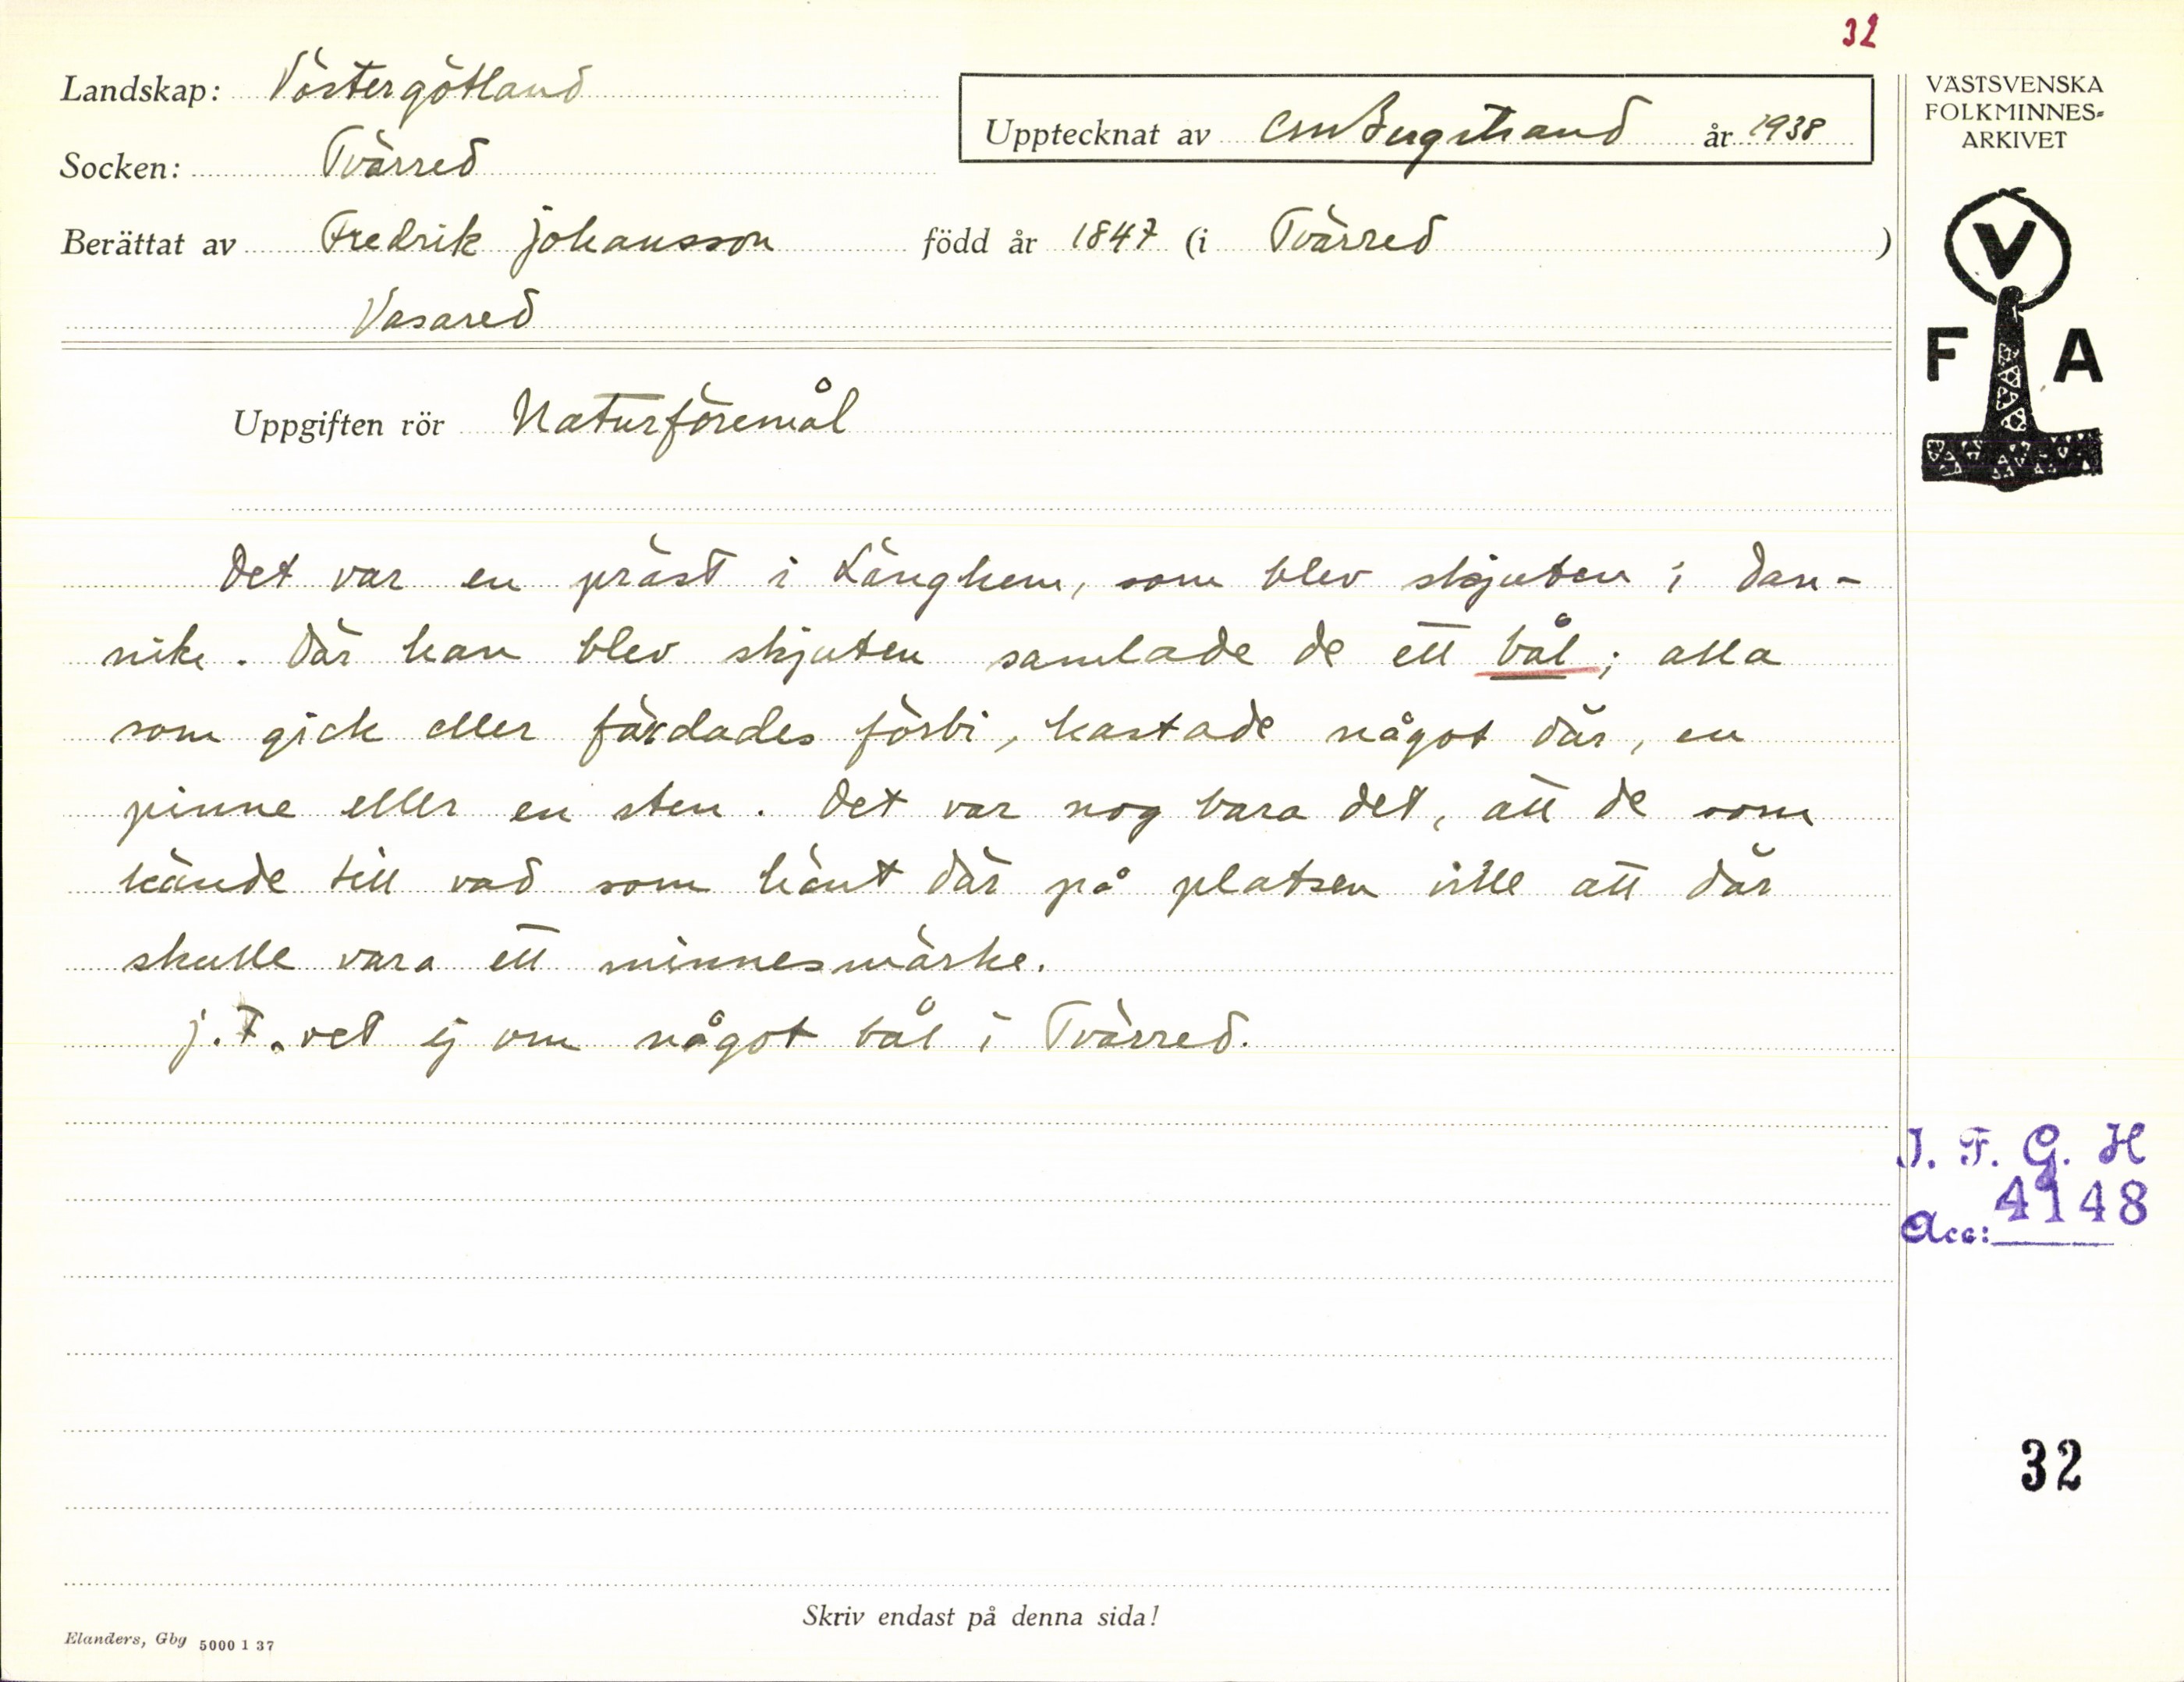 32
Landskap: Västergötland
Upptecknat av CM Bergstrand år 1938
Socken: Tvärred
Berättat av Fredrik Johansson född år 1847 (i Tvärred)
Vasared
Uppgiften rör Naturföremål
Det var en präst i Länghem, som blev skjuten i Dan-
nike. Där han blev skjuten samlade de ett bål; alla
som gick eller färdades förbi, kastade något där, en
pinne eller en sten. Det var nog bara det, att de som
kände till vad som hänt där på platsen ville att där
skulle vara ett minnesmärke.
J. F. vet ej om något bål i Tvärred.
Skriv endast på denna sida!
Elanders, Gbg 5000 1 37
VÄSTSVENSKA
FOLKMINNES-
ARKIVET
V
F A
I. F. G. H
Acc: 4148
32